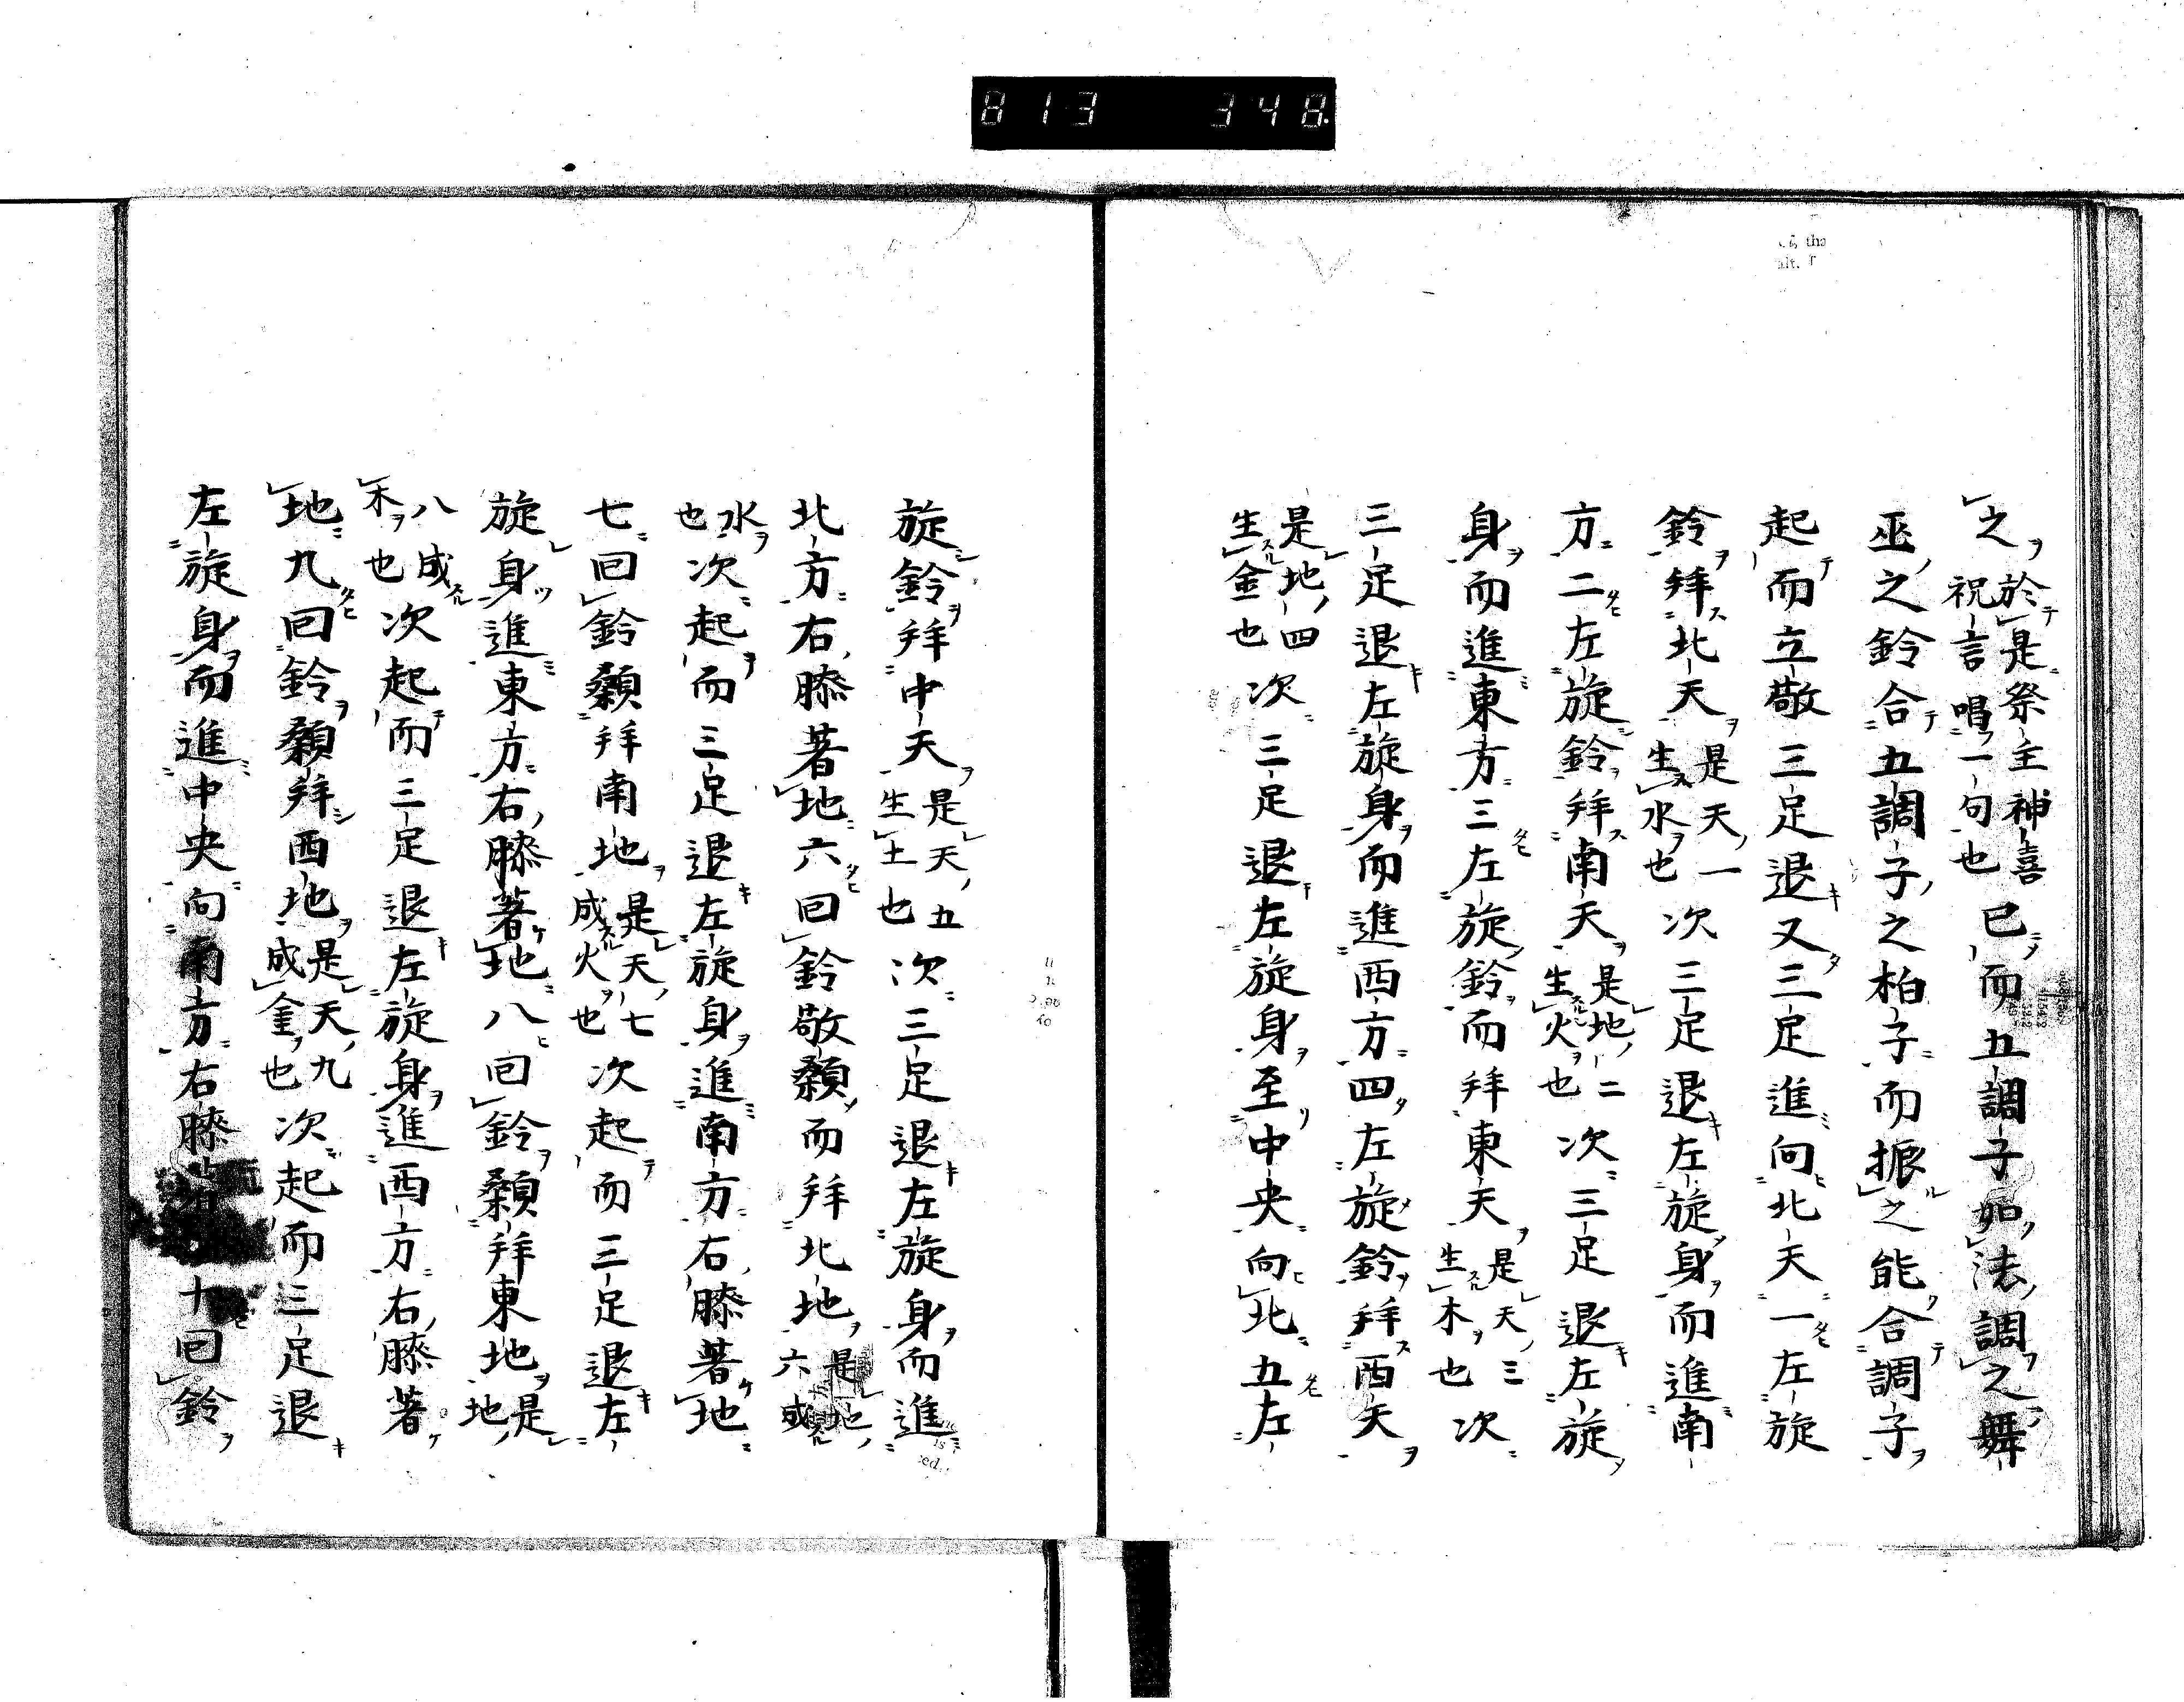 813 348
之於是祭主神喜祝言唱一句也已而五調子如法調之舞
巫之鈴合五調子之柏子而振之能合調子
起而立敬三足退又三足進向北天一左旋
鈴拜北天是天一生水也次三足退左旋身而進南
方二左旋鈴拜南天是地二生火也次三足退左旋
身而進東方三左旋鈴而拜東天是天三生木也次
三足退左旋身而進西方四左旋鈴拜西天
是地四生金也次三足退左旋身至中央向北五左
旋鈴拜中天是天五生土也次三足退左旋身而進
北方右膝著地六回鈴敬顙而拜北地是地六成
水也次起而三足退左旋身進南方右膝著地
七回鈴顙拜南地是天七成火也次起而三足退左
旋身進東方右膝著地八回鈴顙拜東地是地
八成木也次起而三足退左旋身進西方右膝著
地九回鈴顙拜西地是天九成金也次起而三足退
左旋身而進中央向南方右膝十回鈴